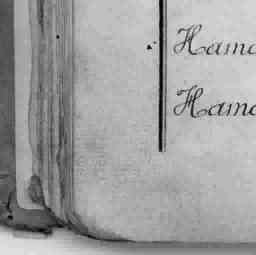 Hama
Hama